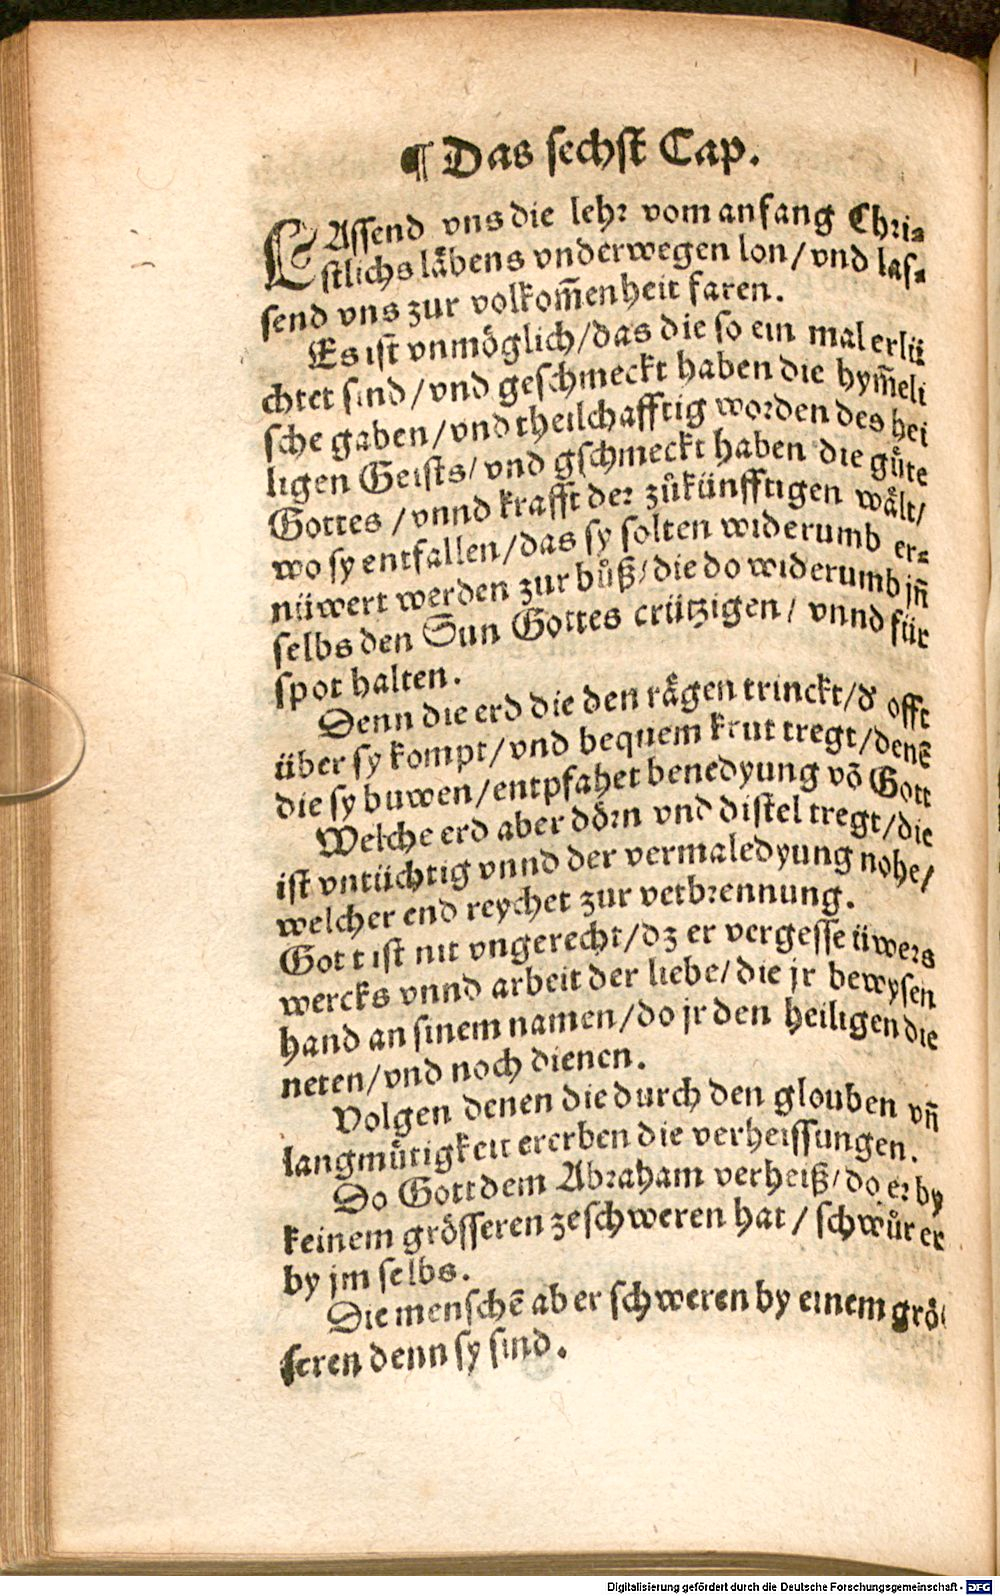 ¶ Das sechst Cap.
LAssend vns die lehr vom anfang Chri-
stlichs läbens vnderwegen lon/ vnd las-
send vns zur volkom̄enheit faren.
Es ist vnmöglich/ das die so ein mal erlü
chtet sind/ vnd geschmeckt haben die hym̄eli
sche gaben/ vnd theilchafftig worden des hei
ligen Geists/ vnd gschmeckt haben die gůte
Gottes/ vnnd krafft der zůkünfftigen wält/
wo sy entfallen/ das sy solten widerumb er-
nüwert werden zur bůß/ die do widerumb jn̄
selbs den Sun Gottes crützigen/ vnnd für
spot halten.
Denn die erd die den rägen trinckt/ d' offt
über sy kompt/ vnd bequem krut tregt/ denē
die sy buwen/ entpfahet benedyung vō Gott
Welche erd aber dörn vnd distel tregt/ die
ist vntüchtig vnnd der vermaledyung nohe/
welcher end reychet zur verbrennung.
Gott ist nit vngerecht/ dz er vergesse üwers
wercks vnnd arbeit der liebe/ die jr bewysen
hand an sinem namen/ do jr den heiligen die
neten/ vnd noch dienen.
Volgen denen die durch den glouben vn̄
langmůtigkeit ererben die verheissungen.
Do Gott dem Abraham verheiß/ do er by
keinem grösseren zeschweren hat/ schwůr er
by jm selbs.
Die menschē aber schweren by einem grö
seren denn sy sind.
Digitalisierung gefördert durch die Deutsche Forschungsgemeinschaft - DFG